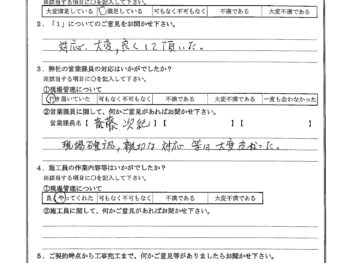 ※該当する項目に○を記入して下さい。
大変満足している 満足している 可もなく不可もなく 不満である 大変不満である
2.「1」についてのご意見をお聞かせ下さい。
対応、大変、良くして頂いた。
3.弊社の営業課員の対応はいかがでしたか?
※該当する項目に○を記入して下さい。
①現場管理について
行き届いていた 可もなく不可もなく 不満である 大変不満である 一度も会わなかった
②営業課員に関して、何かご意見があればお聞かせ下さい。
営業課員名【 斎藤 次紀 】【 】【 】
現場確認、親切な対応 等は大変良かった。
4.施工員の作業内容等はいかがでしたか?
※該当する項目に○を記入して下さい。
①現場管理について
良くやってくれた 可もなく不可もなく 不満である 大変不満である
②施工員に関して、何かご意見があればお聞かせ下さい。
5.ご契約時点から工事完工まで、何かご意見等がありましたらお聞かせ下さい。